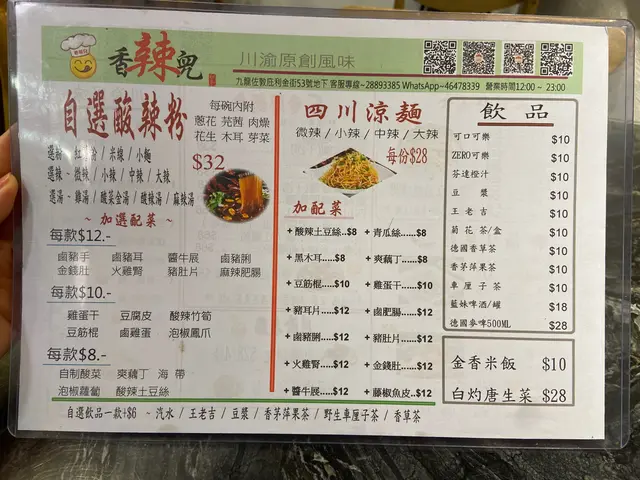 香辣兜
川渝原創風味
九龍佐敦庇利金街53號地下 客服專線~28893385 WhatsApp~46478339 營業時間12:00~23:00
自選酸辣粉
每碗內附
蔥花 芫茜 肉燥
花生 木耳 芽菜
$32
米線 / 小麵
選辣~微辣 / 小辣 / 中辣 / 大辣
選湯~雞湯 / 酸菜金湯 / 酸辣湯 / 麻辣湯
~ 加選配菜 ~
每款$12.-
鹵豬手 鹵豬耳 醬牛展 鹵豬脷
金錢肚 火雞腎 豬肚片 麻辣肥腸
每款$10.-
雞蛋干 豆腐皮 酸辣竹筍
豆筋棍 鹵雞蛋 泡椒鳳爪
每款$8.-
自制酸菜 爽藕丁 海帶
泡椒蘿蔔 酸辣土豆絲
四川涼麵
微辣 / 小辣 / 中辣 / 大辣
每份$28
加配菜
+ 酸辣土豆絲..$8 + 青瓜絲......$8
+ 黑木耳......$8 + 爽藕丁......$8
+ 豆筋棍....$10 + 雞蛋干....$10
+ 豬耳片....$12 + 鹵肥腸....$12
+ 鹵豬脷....$12 + 豬肚片....$12
+ 火雞腎....$12 + 金錢肚....$12
+ 醬牛展....$12 + 藤椒魚皮..$12
飲品
可口可樂 $10
ZERO可樂 $10
芬達橙汁 $10
豆漿 $10
王老吉 $10
菊花茶/盒 $10
德國香草茶 $10
香茅蘋果茶 $10
車厘子茶 $10
藍妹啤酒/罐 $18
德國麥啤500ML $28
金香米飯 $10
白灼唐生菜 $28
自選飲品一款+$6 ~ 汽水 / 王老吉 / 豆漿 / 香茅蘋果茶 / 野生車厘子茶 / 香草茶